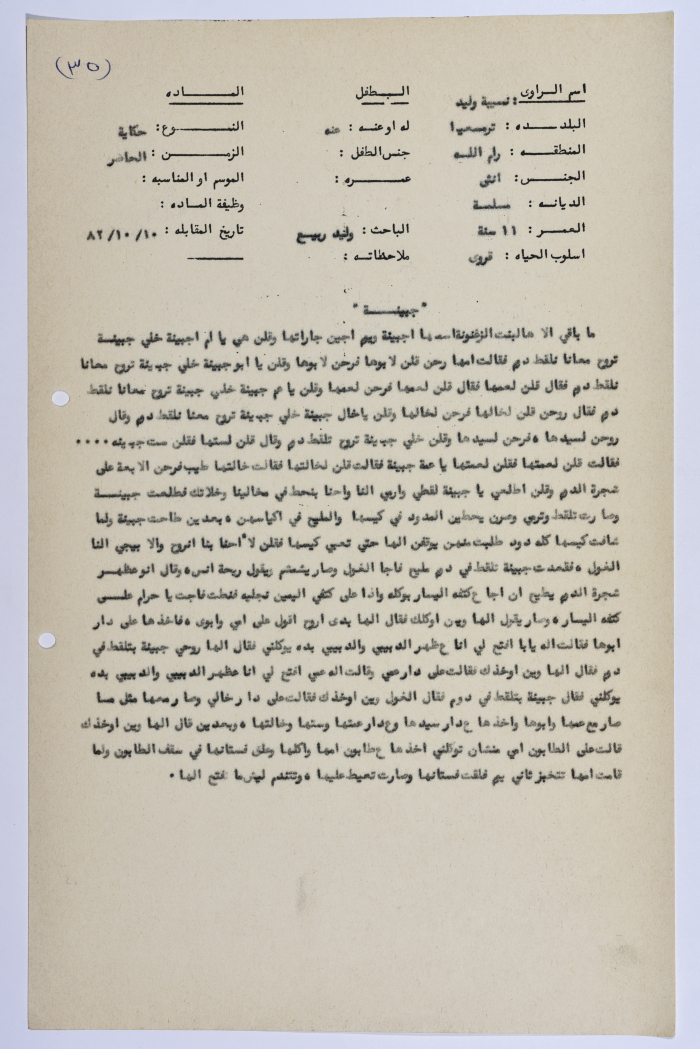 (٣٥)
اسم الراوى : نسيبة وليد
البطل
الماده
البلده : ترمسعيا
له او عنه : عنه
النوع : حكاية
المنطقه : رام الله
جنس الطفل :
الزمن : الحاضر
الجنس : انثى
عمره :
الموسم او المناسبه :
الديانه : مسلمة
وظيفة الماده :
العمر : ١١ سنة
الباحث : وليد ربيع
تاريخ المقابله : ١٠/١٠/٨٢
اسلوب الحياه : قروى
ملاحظاته :
" جبينة "
ما باقي الا هالبنت الزغنونة اسمها اجبينة ويم اجين جاراتها وقلن هي يا ام اجبينة خلي جبينة
تروح معانا نلقط دم فقالت امها رحن قلن لابوها فرحن لابوها وقلن يا ابو جبينة خلي جبينة تروح معانا
نلقط دم فقال قلن لعمها فقال قلن لعمها فرحن لعمها وقلن يا عم جبينة خلي جبينة تروح معانا نلقط
دم فقال روحن قلن لخالها فرحن لخالها وقلن ياخال جبينة خلي جبينة تروح معنا نلقط دم وقال
روحن لسيدها ٠ فرحن لسيدها وقلن خلي جبينة تروح تلقط دم وقال قلن لستها فقلن ست جبينه ٠٠٠٠
فقالت قلن لعمتها فقلن لعمتها يا عمة جبينة فقالت قلن لخالتها فقالت خالتها طيب فرحن الاربعة على
شجرة الدم وقلن اطلعي يا جبينة لقطي واربي النا واحنا بنحط في مخالينا وخلاتك فطلعت جبينة
وصارت تلقط وتربي وصرن يحطين المدود في كيسها والمليح في اكياسهن ٠ بعدين طاحت جبينة ولما
شافت كيسها كله دود طلبت منهن يوقفن الها حتي تعبي كيسها فقلن لا احنا بنا انروح والا بيجي النا
الغول ٠ فقعدت جبينة تلقط في دم مليح فاجا الغول وصار يشمشم ويقول ريحة انس ٠ وقال انو عظهر
شجرة الدم يطيح ان اجا ع كتفه اليسار بوكله واذا على كتفي اليمين نجليه فنطت فاجت يا حرام على
كتفه اليسار ٠ وصار يقول الها وين اوكلك فقال الها بدى اروح اقول على امي وابوى ٠ فاخذها على دار
ابوها فقالت اله يابا افتح لي انا ع ظهر الدبيبي والدبيبي بده يوكلني فقال الها روحي جبينة بتلقط في
دم فقال الها وين اوخذك فقالت على دارعمي وقالت اله عمي افتح لي انا عظهر الدبيبي والدبيبي بده
يوكلني فقال جبينة بتلقط في دوم فقال الغول وين اوخذك فقالت على دار خالي وصار معها مثل ما
صار مع عمها وابوها واخذها ع دار سيدها وع دار عمتها وستها وخالتها ٠ وبعدين قال الها وين اوخذك
قالت على الطابون امي منشان توكلني اخذها ع طابون امها واكلها وعلق فستانها في سقف الطابون ولما
قامت امها تتخبز ثاني يم فلقت فستانها وصارت تعيط عليها ٠ وتتندم ليش ما فتح الها ٠